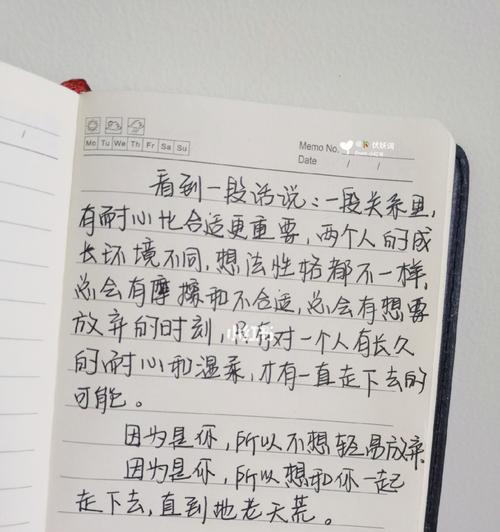 Mo Tu We Th Fr Sa Su
Memo No.
Date / /
看到一段话说：一段关系里，
有耐心比合适更重要，两个人的成
长环境不同，想法性格都不一样，
总会有摩擦和不合适，总会有想要
放弃的时刻，只有对一个人有长久
的耐心和温柔，才有一直走下去的
可能。
因为是你，所以不想轻易放弃
因为是你，所以想和你一起
走下去，直到地老天荒。